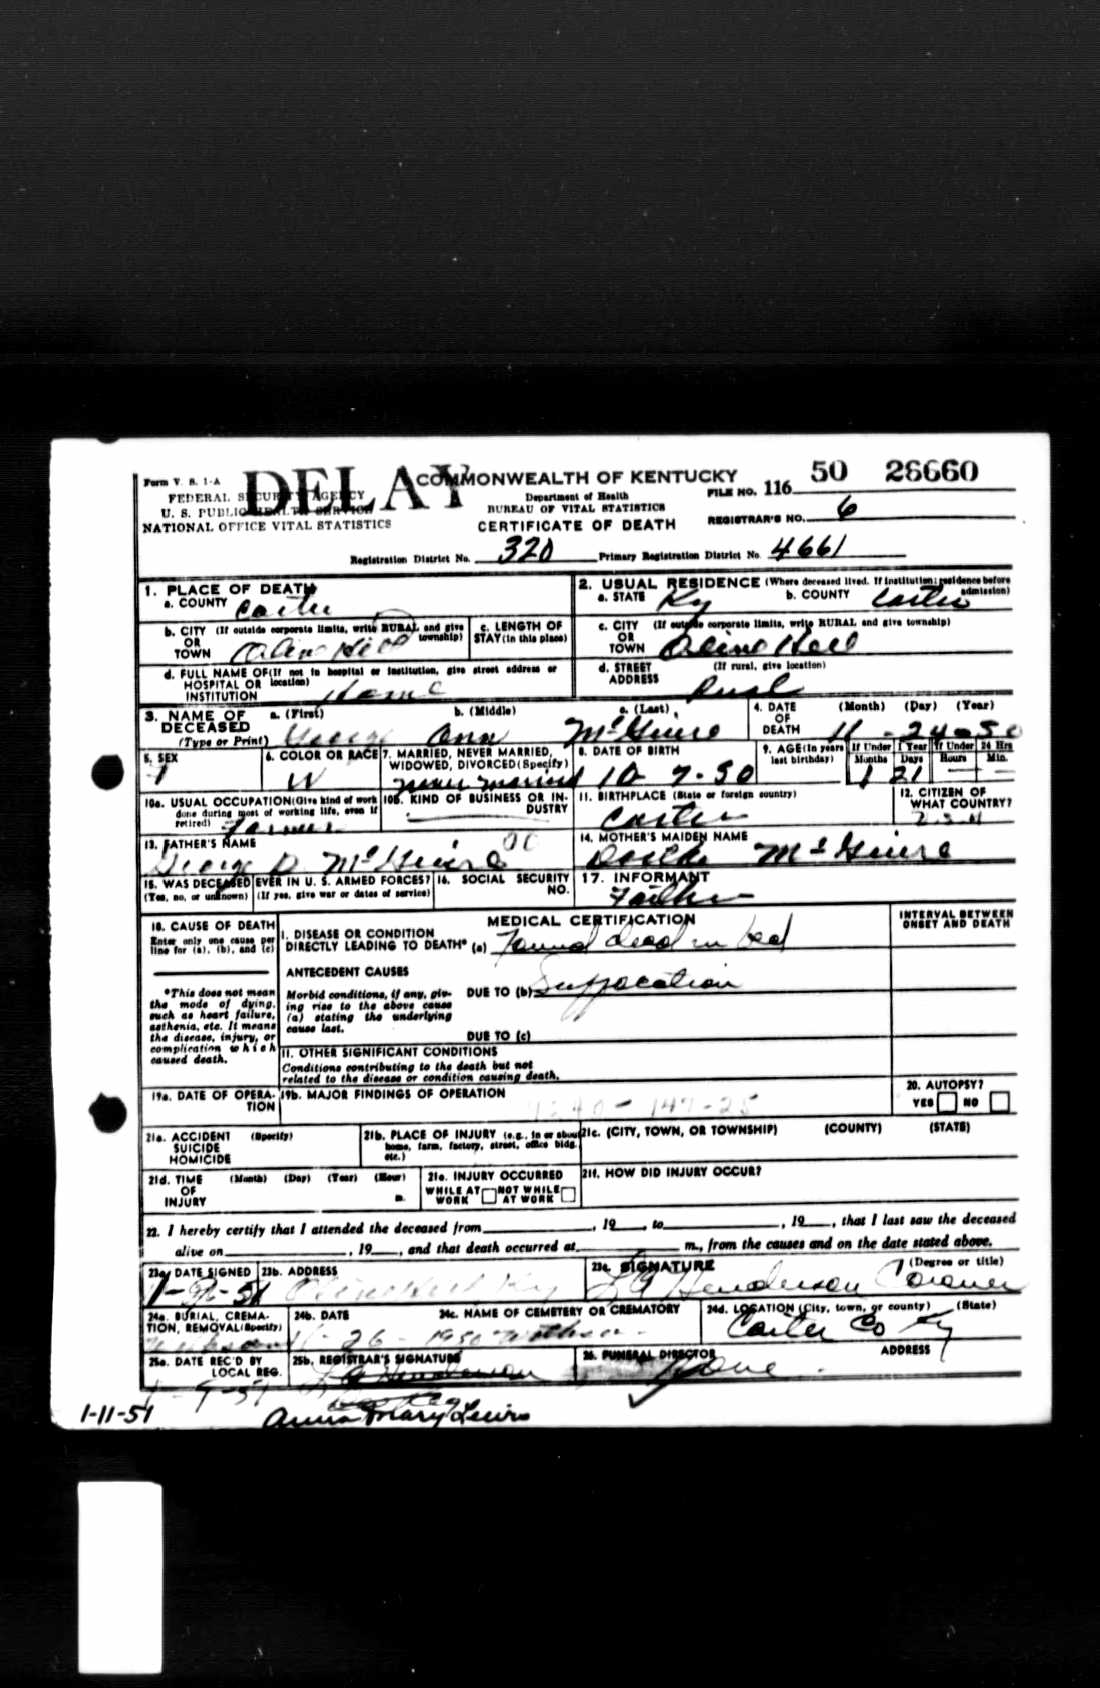 DELAY
Form V. S. 1-A
FEDERAL SECURITY AGENCY
U. S. PUBLIC HEALTH SERVICE
NATIONAL OFFICE VITAL STATISTICS
COMMONWEALTH OF KENTUCKY
Department of Health
BUREAU OF VITAL STATISTICS
CERTIFICATE OF DEATH
FILE NO. 116 50 26660
REGISTRAR'S NO. 6
Registration District No. 320 Primary Registration District No. 4661
1. PLACE OF DEATH
a. COUNTY Carter
2. USUAL RESIDENCE (Where deceased lived. If institution: residence before admission)
a. STATE Ky b. COUNTY Carter
b. CITY (If outside corporate limits, write RURAL and give township)
OR
TOWN Olive Hill
c. LENGTH OF STAY (in this place)
c. CITY (If outside corporate limits, write RURAL and give township)
OR
TOWN Olive Hill
d. FULL NAME OF (If not in hospital or institution, give street address or location)
HOSPITAL OR
INSTITUTION Home
d. STREET (If rural, give location)
ADDRESS Rural
3. NAME OF DECEASED
(Type or Print)
a. (First) b. (Middle) c. (Last)
George Ann McGuire
4. DATE OF DEATH (Month) (Day) (Year)
11-24-50
5. SEX
F
6. COLOR OR RACE
W
7. MARRIED, NEVER MARRIED, WIDOWED, DIVORCED (Specify)
never married
8. DATE OF BIRTH
10-7-50
9. AGE (In years last birthday) If Under 1 Year Months Days If Under 24 Hrs Hours Min.
1 21
10a. USUAL OCCUPATION (Give kind of work done during most of working life, even if retired)
10b. KIND OF BUSINESS OR INDUSTRY
11. BIRTHPLACE (State or foreign country)
Carter
12. CITIZEN OF WHAT COUNTRY?
13. FATHER'S NAME
George D. McGuire
14. MOTHER'S MAIDEN NAME
McGuire
15. WAS DECEASED EVER IN U. S. ARMED FORCES?
(Yes, no, or unknown) (If yes, give war or dates of service)
16. SOCIAL SECURITY NO.
17. INFORMANT
Father
18. CAUSE OF DEATH
Enter only one cause per line for (a), (b), and (c)
*This does not mean the mode of dying, such as heart failure, asthenia, etc. It means the disease, injury, or complication which caused death.
MEDICAL CERTIFICATION
INTERVAL BETWEEN ONSET AND DEATH
I. DISEASE OR CONDITION
DIRECTLY LEADING TO DEATH* (a) Found dead in bed
ANTECEDENT CAUSES
Morbid conditions, if any, giving rise to the above cause (a) stating the underlying cause last.
DUE TO (b) Suffocation
DUE TO (c)
II. OTHER SIGNIFICANT CONDITIONS
Conditions contributing to the death but not related to the disease or condition causing death.
19a. DATE OF OPERATION
19b. MAJOR FINDINGS OF OPERATION
20. AUTOPSY?
YES NO
21a. ACCIDENT (Specify)
SUICIDE
HOMICIDE
21b. PLACE OF INJURY (e.g., in or about home, farm, factory, street, office bldg. etc.)
21c. (CITY, TOWN, OR TOWNSHIP) (COUNTY) (STATE)
21d. TIME OF INJURY (Month) (Day) (Year) (Hour)
m.
21e. INJURY OCCURRED
WHILE AT WORK NOT WHILE AT WORK
21f. HOW DID INJURY OCCUR?
22. I hereby certify that I attended the deceased from , 19 , to , 19 , that I last saw the deceased
alive on , 19 , and that death occurred at m., from the causes and on the date stated above.
23a. DATE SIGNED
23b. ADDRESS
Olive Hill Ky
23c. SIGNATURE (Degree or title)
Henderson Coroner
24a. BURIAL, CREMATION, REMOVAL (Specify)
24b. DATE
11-26-1950
24c. NAME OF CEMETERY OR CREMATORY
24d. LOCATION (City, town, or county) (State)
Carter Co Ky
25a. DATE REC'D BY LOCAL REG.
1-9-51
25b. REGISTRAR'S SIGNATURE
Henderson
26. FUNERAL DIRECTOR ADDRESS
None
1-11-51
Anna Mary Lewis